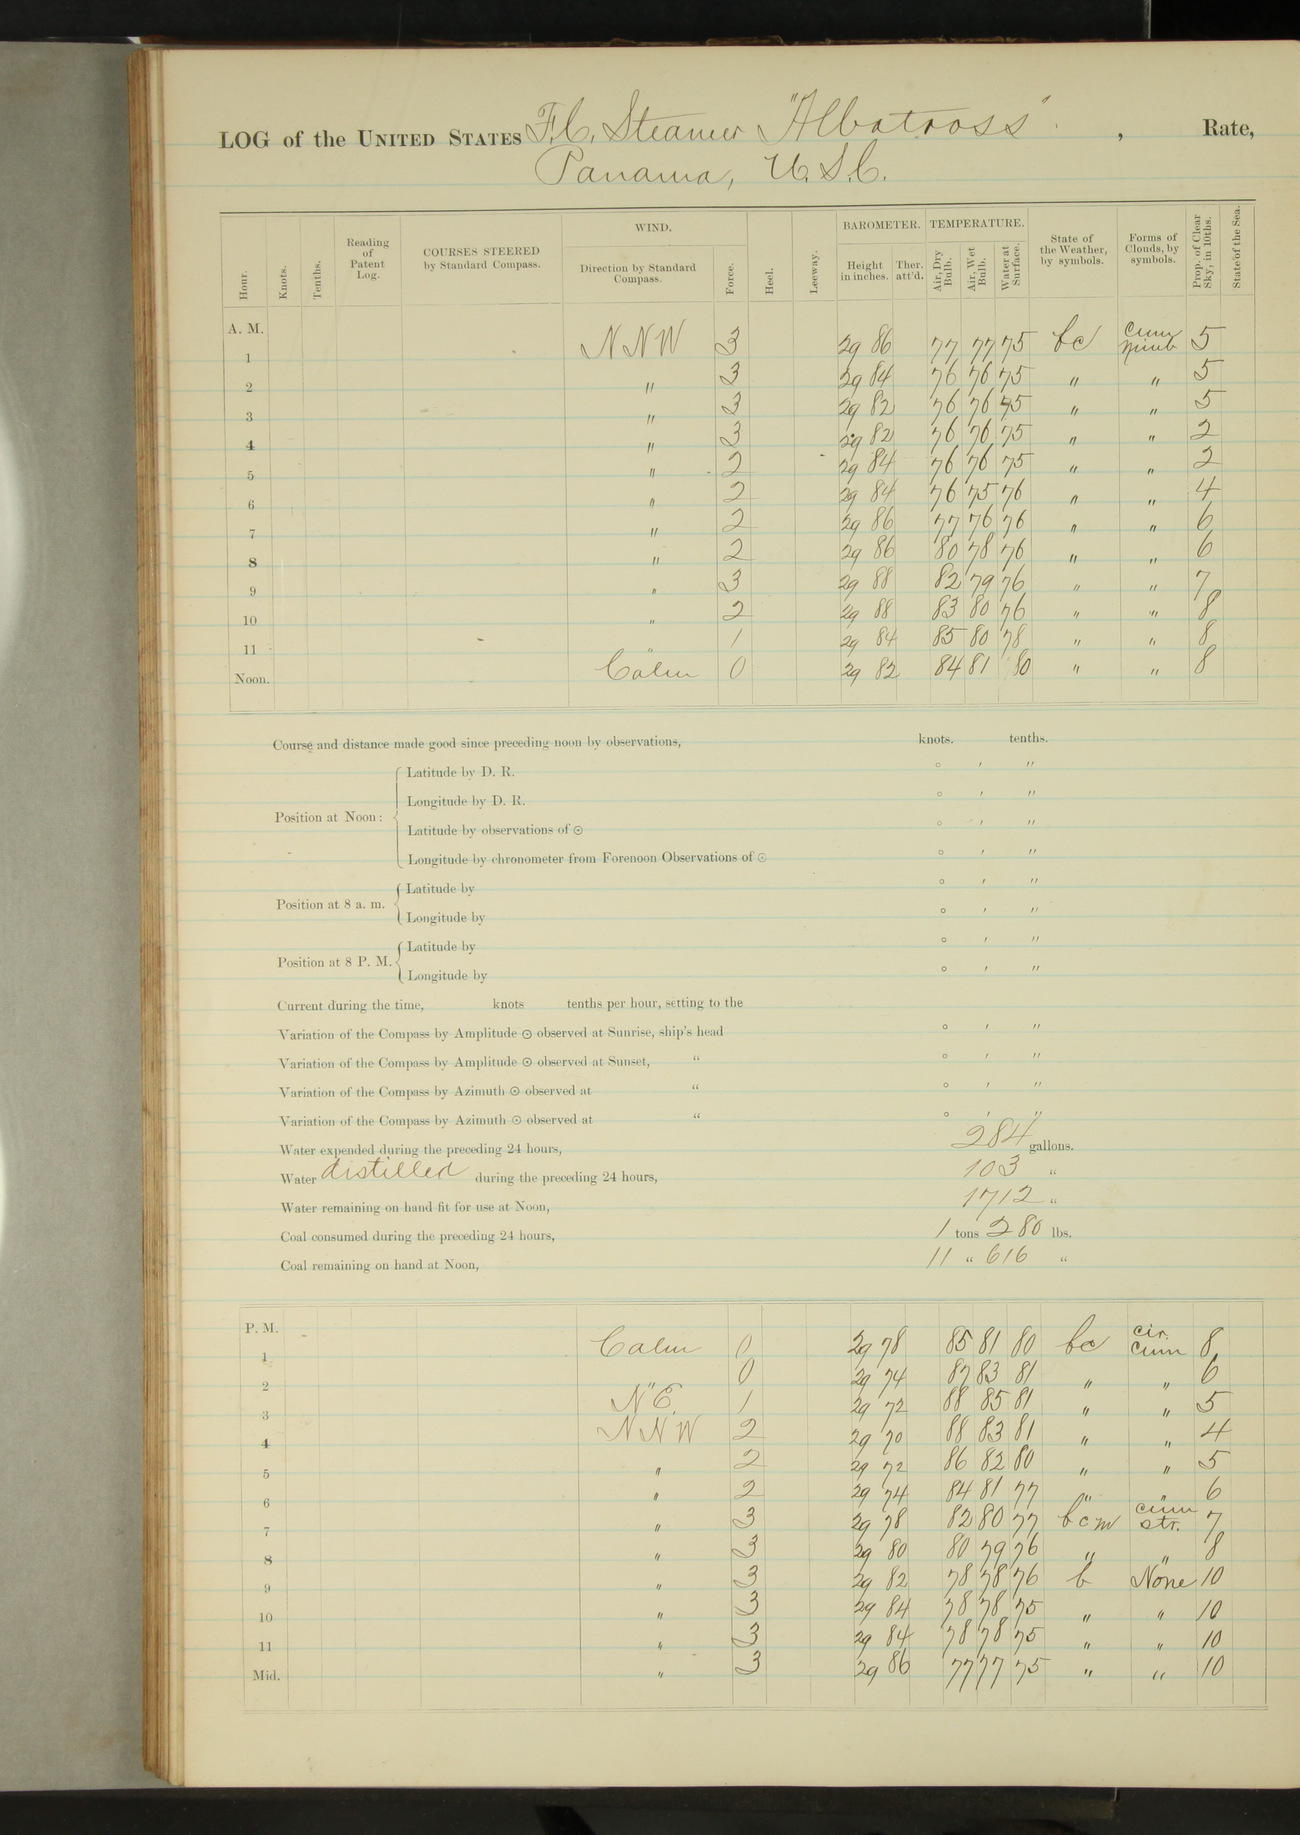 LOG of the UNITED STATES F.C. Steamer "Albatross" , Rate,
Panama, U.S.C.
Hour. Knots. Tenths. Reading of Patent Log. COURSES STEERED by Standard Compass. WIND. Direction by Standard Compass. Force. Heel. Leeway. BAROMETER. Height in inches. Ther. att'd. TEMPERATURE. Air, Dry Bulb. Air, Wet Bulb. Water at Surface. State of the Weather, by symbols. Forms of Clouds, by symbols. Prop. of Clear Sky, in 10ths. State of the Sea.
A. M.
1 NNW 3 29 86 77 77 75 bc Cum Nimb 5
2 " 3 29 84 76 76 75 " " 5
3 " 3 29 82 76 76 75 " " 5
4 " 3 29 82 76 76 75 " " 2
5 " 2 29 84 76 76 75 " " 2
6 " 2 29 84 76 75 76 " " 4
7 " 2 29 86 77 76 76 " " 6
8 " 2 29 86 80 78 76 " " 6
9 " 3 29 88 82 79 76 " " 7
10 " 2 29 88 83 80 76 " " 8
11 " 1 29 84 85 80 78 " " 8
Noon. Calm 0 29 82 84 81 80 " " 8
Course and distance made good since preceding noon by observations, knots. tenths.
Position at Noon:
Latitude by D. R. ° ′ ″
Longitude by D. R. ° ′ ″
Latitude by observations of ☉ ° ′ ″
Longitude by chronometer from Forenoon Observations of ☉ ° ′ ″
Position at 8 a. m.
Latitude by ° ′ ″
Longitude by ° ′ ″
Position at 8 P. M.
Latitude by ° ′ ″
Longitude by ° ′ ″
Current during the time, knots tenths per hour, setting to the
Variation of the Compass by Amplitude ☉ observed at Sunrise, ship's head ° ′ ″
Variation of the Compass by Amplitude ☉ observed at Sunset, " ° ′ ″
Variation of the Compass by Azimuth ☉ observed at " ° ′ ″
Variation of the Compass by Azimuth ☉ observed at " ° ′ ″
Water expended during the preceding 24 hours, 284 gallons.
Water distilled during the preceding 24 hours, 103 "
Water remaining on hand fit for use at Noon, 1712 "
Coal consumed during the preceding 24 hours, 1 tons 280 lbs.
Coal remaining on hand at Noon, 11 " 616 "
P. M.
1 Calm 0 29 78 85 81 80 bc cir. cum 8
2 " 0 29 74 87 83 81 " " 6
3 N E. 1 29 72 88 85 81 " " 5
4 NNW 2 29 70 88 83 81 " " 4
5 " 2 29 72 86 82 80 " " 5
6 " 2 29 74 84 81 77 " " 6
7 " 3 29 78 82 80 77 bcm cum str. 7
8 " 3 29 80 80 79 76 " " 8
9 " 3 29 82 78 78 76 b None 10
10 " 3 29 84 78 78 75 " " 10
11 " 3 29 84 78 78 75 " " 10
Mid. " 3 29 86 77 77 75 " " 10